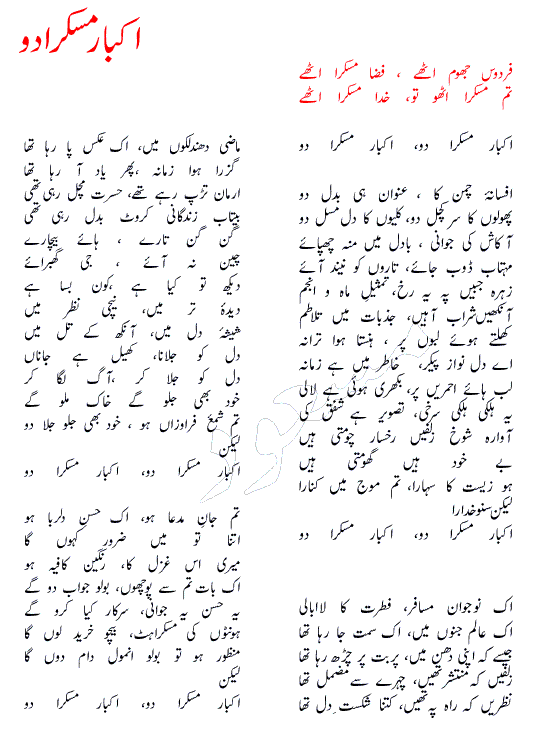 اکبار مسکرا دو
فردوس جھوم اٹھے ، فضا مسکرا اٹھے
تم مسکرا اٹھو تو، خدا مسکرا اٹھے
اکبار مسکرا دو، اکبار مسکرا دو
افسانۂ چمن کا ، عنوان ہی بدل دو
پھولوں کا سر کچل دو، کلیوں کا دل مسل دو
آکاش کی جوانی ، بادل میں منہ چھپائے
مہتاب ڈوب جائے، تاروں کو نیند آئے
زہرہ جبیں پہ یہ رخ، تمثیلِ ماہ و انجم
آنکھیں شراب آہیں، جذبات میں تلاطم
کھلتے ہوئے لبوں پر ، ہنستا ہوا ترانہ
اے دل نواز پیکر، خاطر میں ہے زمانہ
لب ہائے احمریں پر، بکھری ہوئی ہے لالی
یہ ہلکی ہلکی سرخی، تصویر ہے شفق کی
آوارہ شوخ زلفیں رخسار چومتی ہیں
بے خود ہیں گھومتی ہیں
ہو زیست کا سہارا، تم موج میں کنارا
لیکن سنو خدارا
اکبار مسکرا دو، اکبار مسکرا دو
اک نوجوان مسافر، فطرت کا لاابالی
اک عالمِ جنوں میں، اک سمت جا رہا تھا
جیسے کہ اپنی دھن میں، پربت پر چڑھ رہا تھا
زلفیں کہ منتشر تھیں، چہرے سے مضمحل تھا
نظریں کہ راہ پہ تھیں، کتنا شکست دل تھا
ماضی دھندلکوں میں، اک عکس پا رہا تھا
گزرا ہوا زمانہ ،پھر یاد آ رہا تھا
ارمان تڑپ رہے تھے، حسرت مچل رہی تھی
بیتاب زندگانی کروٹ بدل رہی تھی
گن گن تارے ، ہائے بیچارے
چین نہ آئے ، جی گھبرائے
دیکھ تو کیا ہے ،کون بسا ہے
دیدۂ تر میں، نیچی نظر میں
شیشۂ دل میں، آنکھ کے تل میں
دل کو جلانا، کھیل ہے جاناں
دل کو جلا کر ،آگ لگا کر
خود بھی جلو گے خاک ملو گے
تم شمعِ فروزاں ہو ، خود بھی جلو جلا دو
لیکن
اکبار مسکرا دو، اکبار مسکرا دو
تم جانِ مدعا ہو، اک حسنِ دلربا ہو
اتنا تو میں ضرور کہوں گا
میری اس غزل کا، رنگین کافیہ ہو
اک بات تم سے پوچھوں، بولو جواب دو گے
یہ حسن یہ جوانی، سرکار کیا کرو گے
ہونٹوں کی مسکراہٹ، بیچو خرید لوں گا
منظور ہو تو بولو انمول دام دوں گا
لیکن
اکبار مسکرا دو، اکبار مسکرا دو